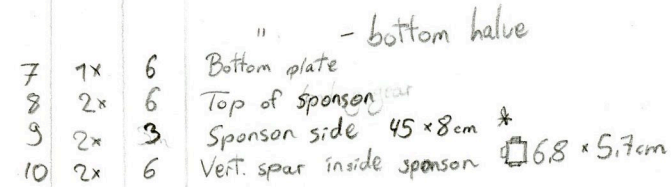 " - bottom halve
7 1x 6 Bottom plate
8 2x 6 Top of sponson
9 2x 3 Sponson side 45 x 8 cm *
10 2x 6 Vert. spar inside sponson 6,8 x 5,7cm